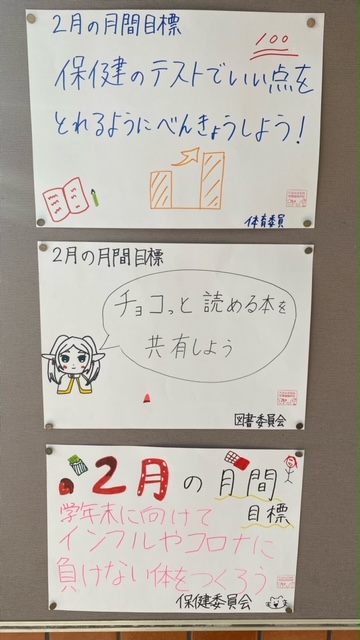 2月の月間目標
100
保健のテストでいい点を
とれるようにべんきょうしよう!
体育委員
2月の月間目標
チョコっと 読める本を
共有しよう
図書委員会
2月の月間
目標
学年末に向けて
インフルやコロナに
負けない体をつくろう
保健委員会